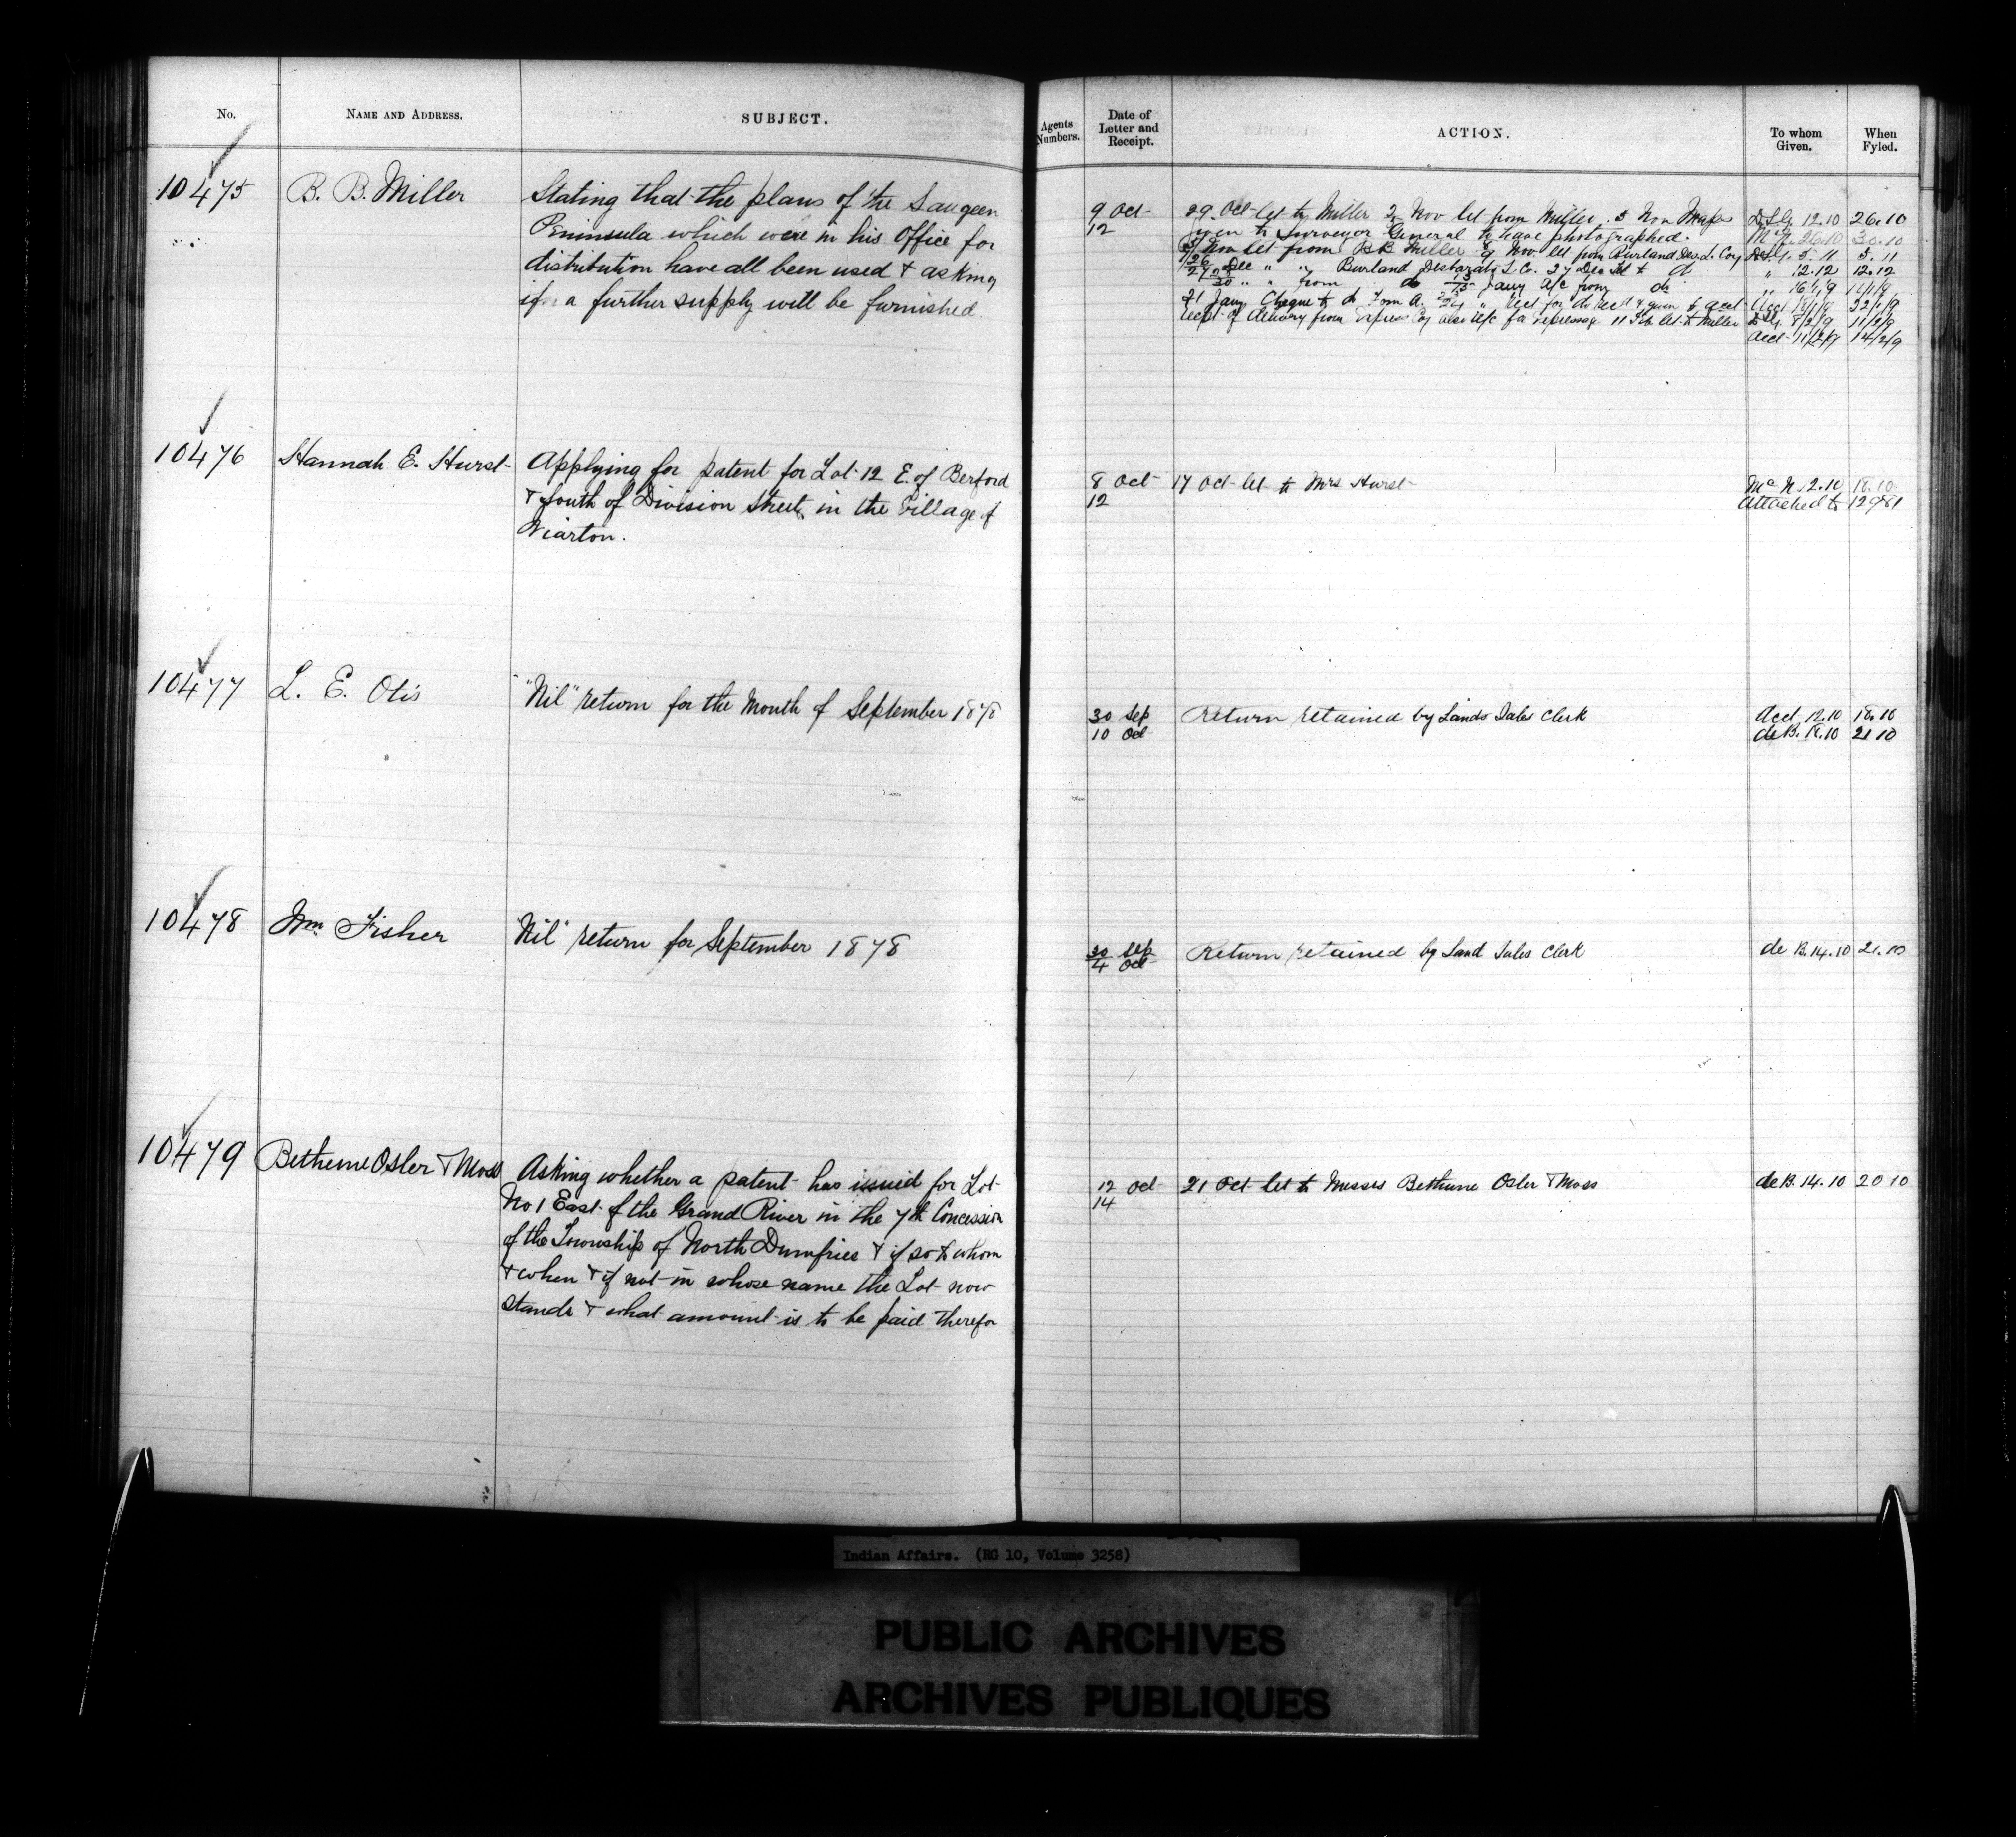 No.
NAME AND ADDRESS.
SUBJECT.
Agents Numbers.
Date of Letter and Receipt.
ACTION.
To whom Given.
When Fyled.
10475
B. B. Miller
Stating that the plans of the Saugeen
Peninsula which were in his Office for
distribution have all been used & asking
if a further supply will be furnished.
9 Oct
12
29. Oct let to Miller 2 Nov let from Miller. 5 Nov Maps
given to Surveyor General to have photographed.
5 Nov let from B B Miller 9 Nov. let from Burland Desd. Coy
Dec " " Burland Desbarats L. Co. 27 Dec let to do
30 " " from do 13/15 Jany A/c from do
21 Jany Cheque to do from A. " Rect for do recd & given to acct
rect of delivery from Express Coy also A/c for expressage 11 Feb let to Miller
12.10 26.10
26.10 30.10
5.11 5.11
" 12.12 12.12
" 16/1/9
Acct 18/1/9 22/1/9
8/2/9 11/2/9
Acct 11/2/9 14/2/9
10476
Hannah E. Hurst
Applying for patent for Lot 12 E. of Berford
& South of Division Street, in the Village of
Wiarton.
8 Oct
12
17 Oct let to Mrs Hurst
McN. 12.10 18.10
Attached to 12981
10477
L. E. Otis
"Nil" return for the Month of September 1878
30 Sep
10 Oct
Return retained by Lands Sales Clerk
Acct 12.10 18.10
de B. 18.10 21 10
10478
Wm Fisher
"Nil" return for September 1878
30 Sep
4 Oct
Return retained by Land Sales Clerk
de B. 14.10 21.10
10479
Bethune Osler & Moss
Asking whether a patent has issued for Lot
No 1 East of the Grand River in the 7th Concession
of the Township of North Dumfries & if so to whom
& when & if not in whose name the Lot now
stands & what amount is to be paid therefor
12 Oct
14
21 Oct let to Messrs Bethune Osler & Moss
de B. 14.10 20 10
Indian Affairs. (RG 10, Volume 3258)
PUBLIC ARCHIVES
ARCHIVES PUBLIQUES